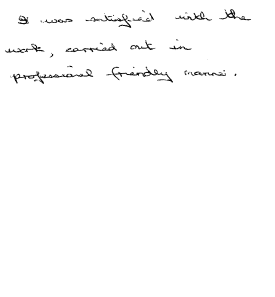 I was satisfied with the
work, carried out in
professional friendly manner.